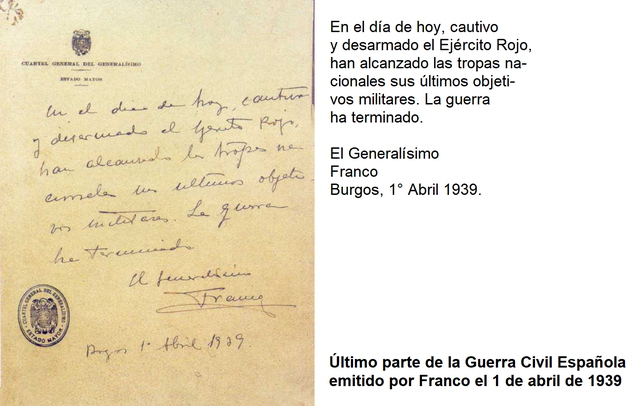 CUARTEL GENERAL DEL GENERALÍSIMO
ESTADO MAYOR
En el dia de hoy, cautivo
y desarmado el Ejercito Rojo,
han alcanzado las tropas na-
cionales sus ultimos objeti-
vos militares. La guerra
ha terminado
El Generalisimo
Franco
CUARTEL GENERAL DEL GENERALISIMO
ESTADO MAYOR
Burgos 1º Abril 1939.
En el día de hoy, cautivo
y desarmado el Ejército Rojo,
han alcanzado las tropas na-
cionales sus últimos objeti-
vos militares. La guerra
ha terminado.
El Generalísimo
Franco
Burgos, 1° Abril 1939.
Último parte de la Guerra Civil Española
emitido por Franco el 1 de abril de 1939